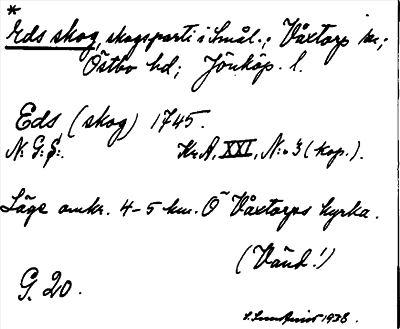 *
Eds skog, skogsparti i Smål.; Våxtorp sn;
Östbo hd; Jönköp. l.
Eds (skog) 1745.
N: G: S:. Kr. A. XXI, N:o 3 (kop.).
Läge omkr. 4-5 km. O~ Våxtorps kyrka.
(Vänd!)
G. 20.
1938.